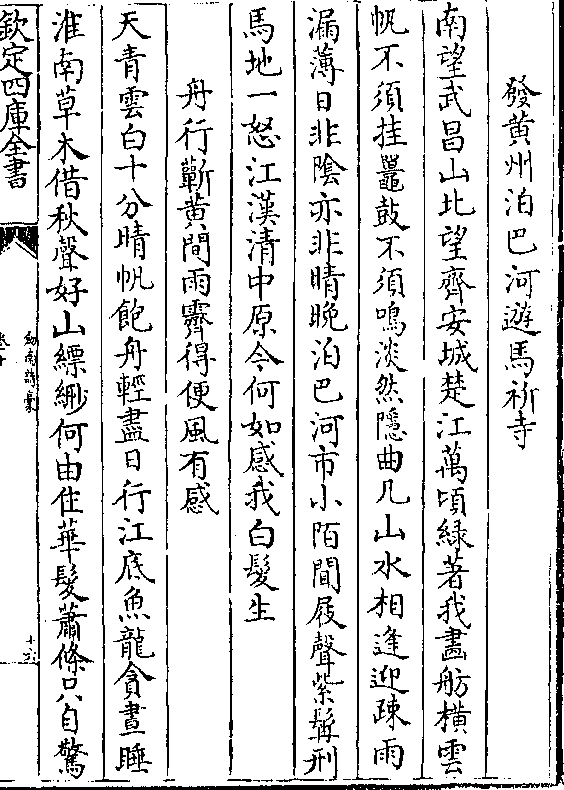 發黃州泊巴河遊馬祈寺
南望武昌山北望齊安城楚江萬頃緑著我畫舫横雲
帆不須挂鼉鼓不須鳴淡然隱曲几山水相逢迎疎雨
漏薄日非陰亦非晴晚泊巴河市小陌聞屐聲紫髯刑
馬地一怒江漢清中原今何如感我白髮生
舟行蘄黃間雨霽得便風有感
天青雲白十分晴帆飽舟輕盡日行江底魚龍貪晝睡
淮南草木借秋聲好山縹緲何由住華髮蕭條只自驚
欽定四庫全書
劍南詩藁
卷十
十六